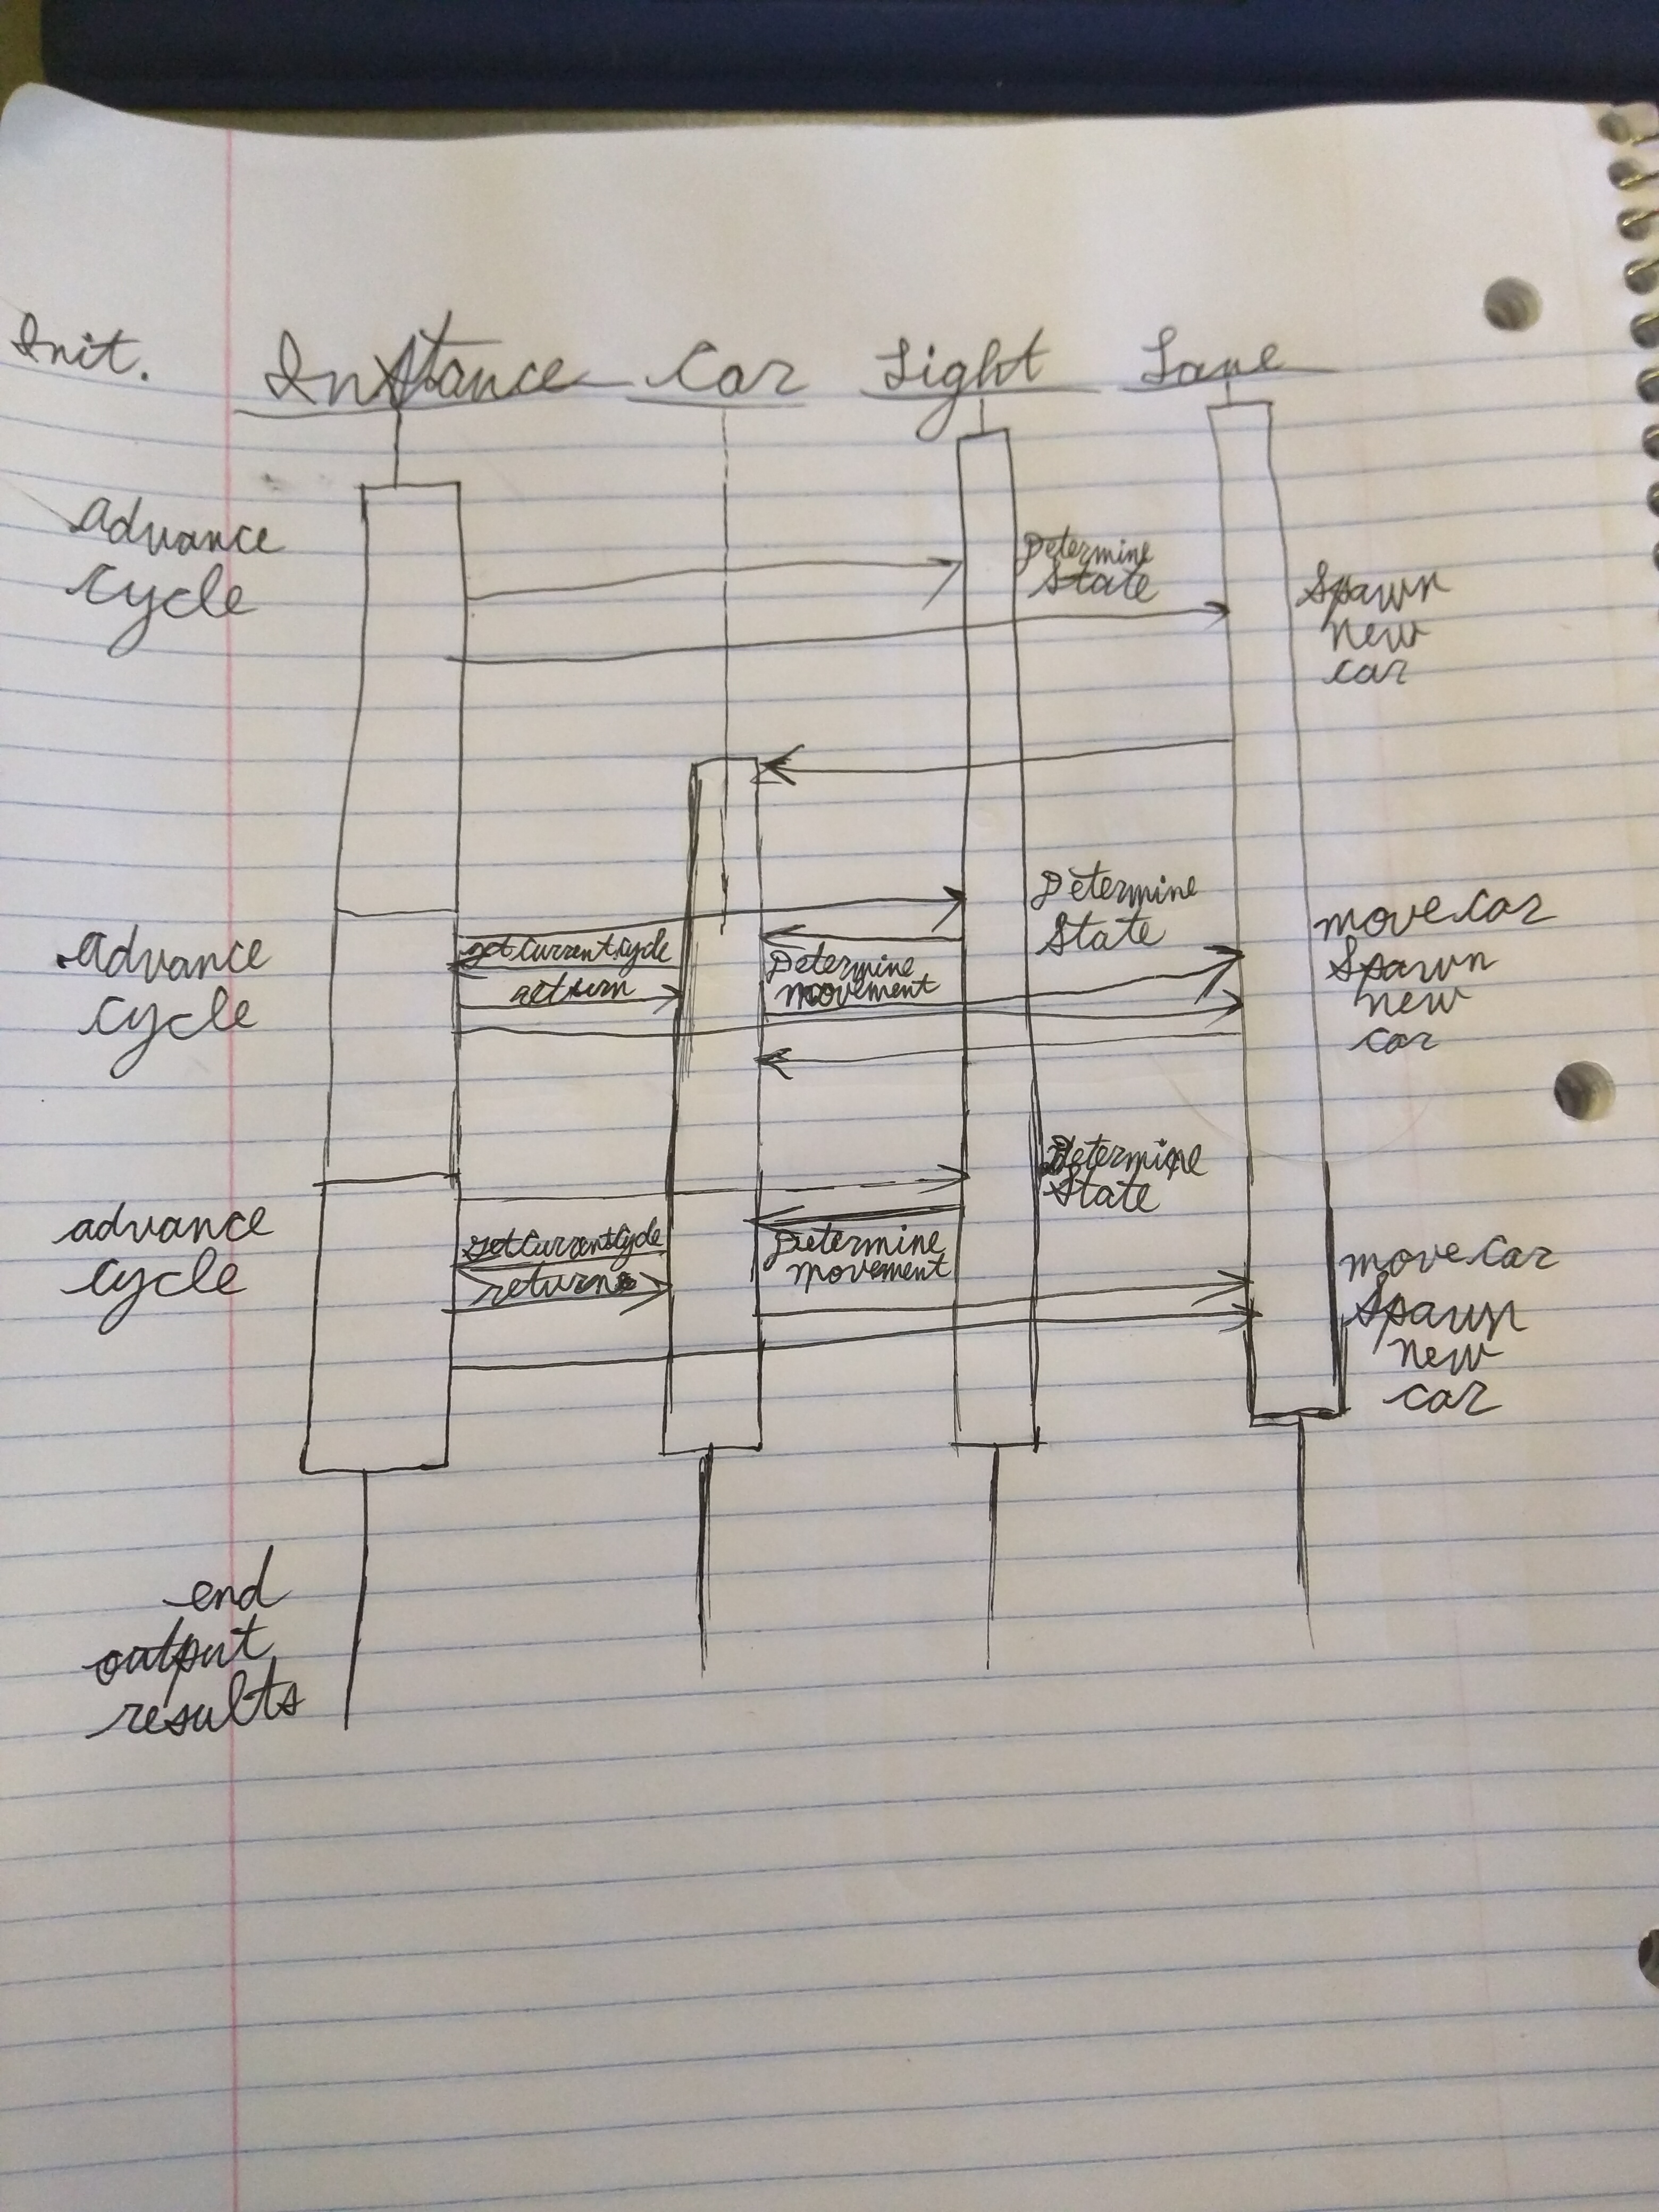 Init.
Instance Car Light Lane
advance
cycle
Determine
State
Spawn
new
car
advance
cycle
getCurrentCycle
return
Determine
movement
Determine
State
move car
Spawn
new
car
advance
cycle
getCurrentCycle
returns
Determine
movement
Determine
State
move car
Spawn
new
car
end
output
results